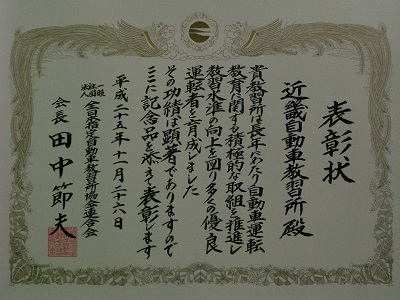 表彰状
近畿自動車教習所殿
貴教習所は長年にわたり自動車運転
教育に関する積極的な取組を推進し
教習水準の向上を図り多くの優良
運転者を育成しました
その功績は顕著でありますので
ここに記念品を添えて表彰します
平成二十五年十一月二十六日
一般社団法人 全日本指定自動車教習所協会連合会
会長 田中節夫